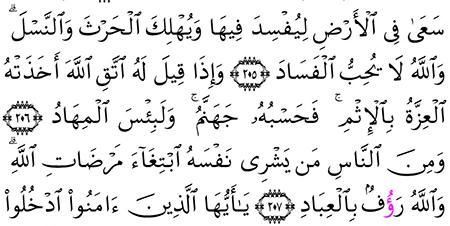 سَعَىٰ فِى ٱلْأَرْضِ لِيُفْسِدَ فِيهَا وَيُهْلِكَ ٱلْحَرْثَ وَٱلنَّسْلَ ۗ
وَٱللَّهُ لَا يُحِبُّ ٱلْفَسَادَ ۝٢٠٥ وَإِذَا قِيلَ لَهُ ٱتَّقِ ٱللَّهَ أَخَذَتْهُ
ٱلْعِزَّةُ بِٱلْإِثْمِ ۚ فَحَسْبُهُۥ جَهَنَّمُ ۚ وَلَبِئْسَ ٱلْمِهَادُ ۝٢٠٦
وَمِنَ ٱلنَّاسِ مَن يَشْرِى نَفْسَهُ ٱبْتِغَآءَ مَرْضَاتِ ٱللَّهِ ۗ
وَٱللَّهُ رَؤُفٌۢ بِٱلْعِبَادِ ۝٢٠٧ يَـٰٓأَيُّهَا ٱلَّذِينَ ءَامَنُوا۟ ٱدْخُلُوا۟